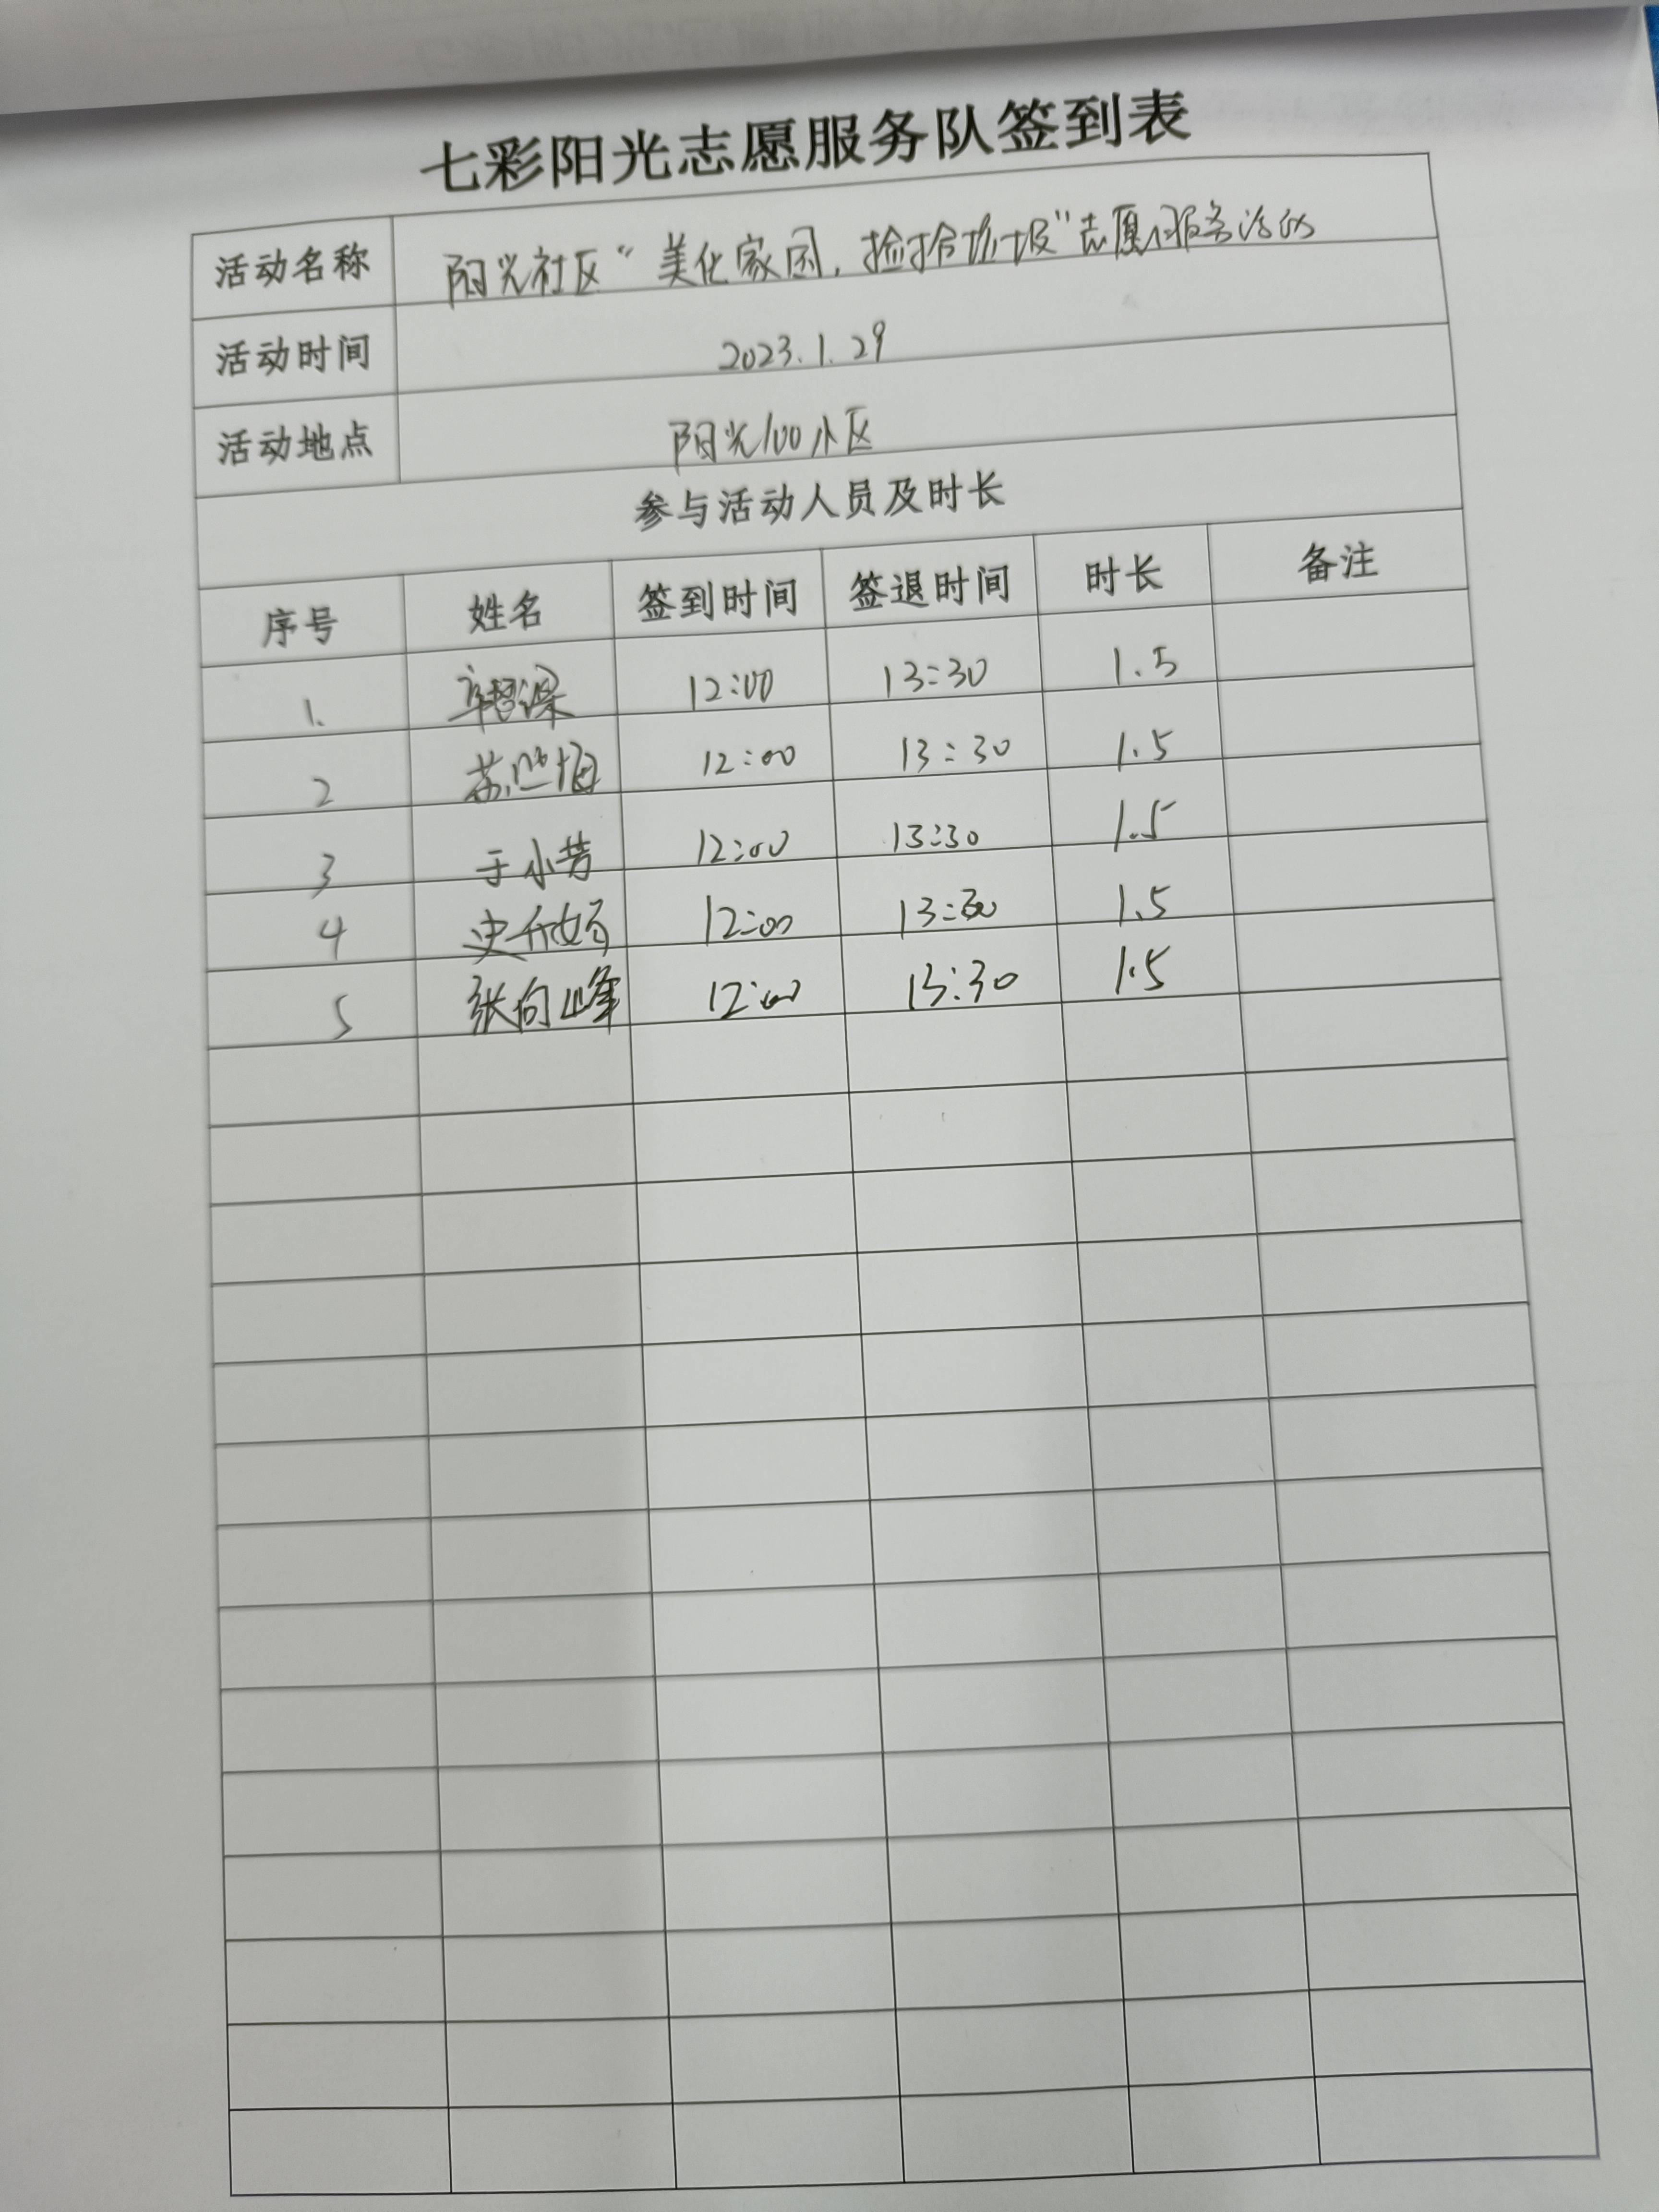 七彩阳光志愿服务队签到表
活动名称 阳光社区“美化家园，捡拾垃圾”志愿服务活动
活动时间 2023.1.29
活动地点 阳光100小区
参与活动人员及时长
序号 姓名 签到时间 签退时间 时长 备注
1. 12:00 13:30 1.5
2 苏 12:00 13:30 1.5
3 于小芳 12:00 13:30 1.5
4 史 12:00 13:30 1.5
5 张向峰 12:00 13:30 1.5